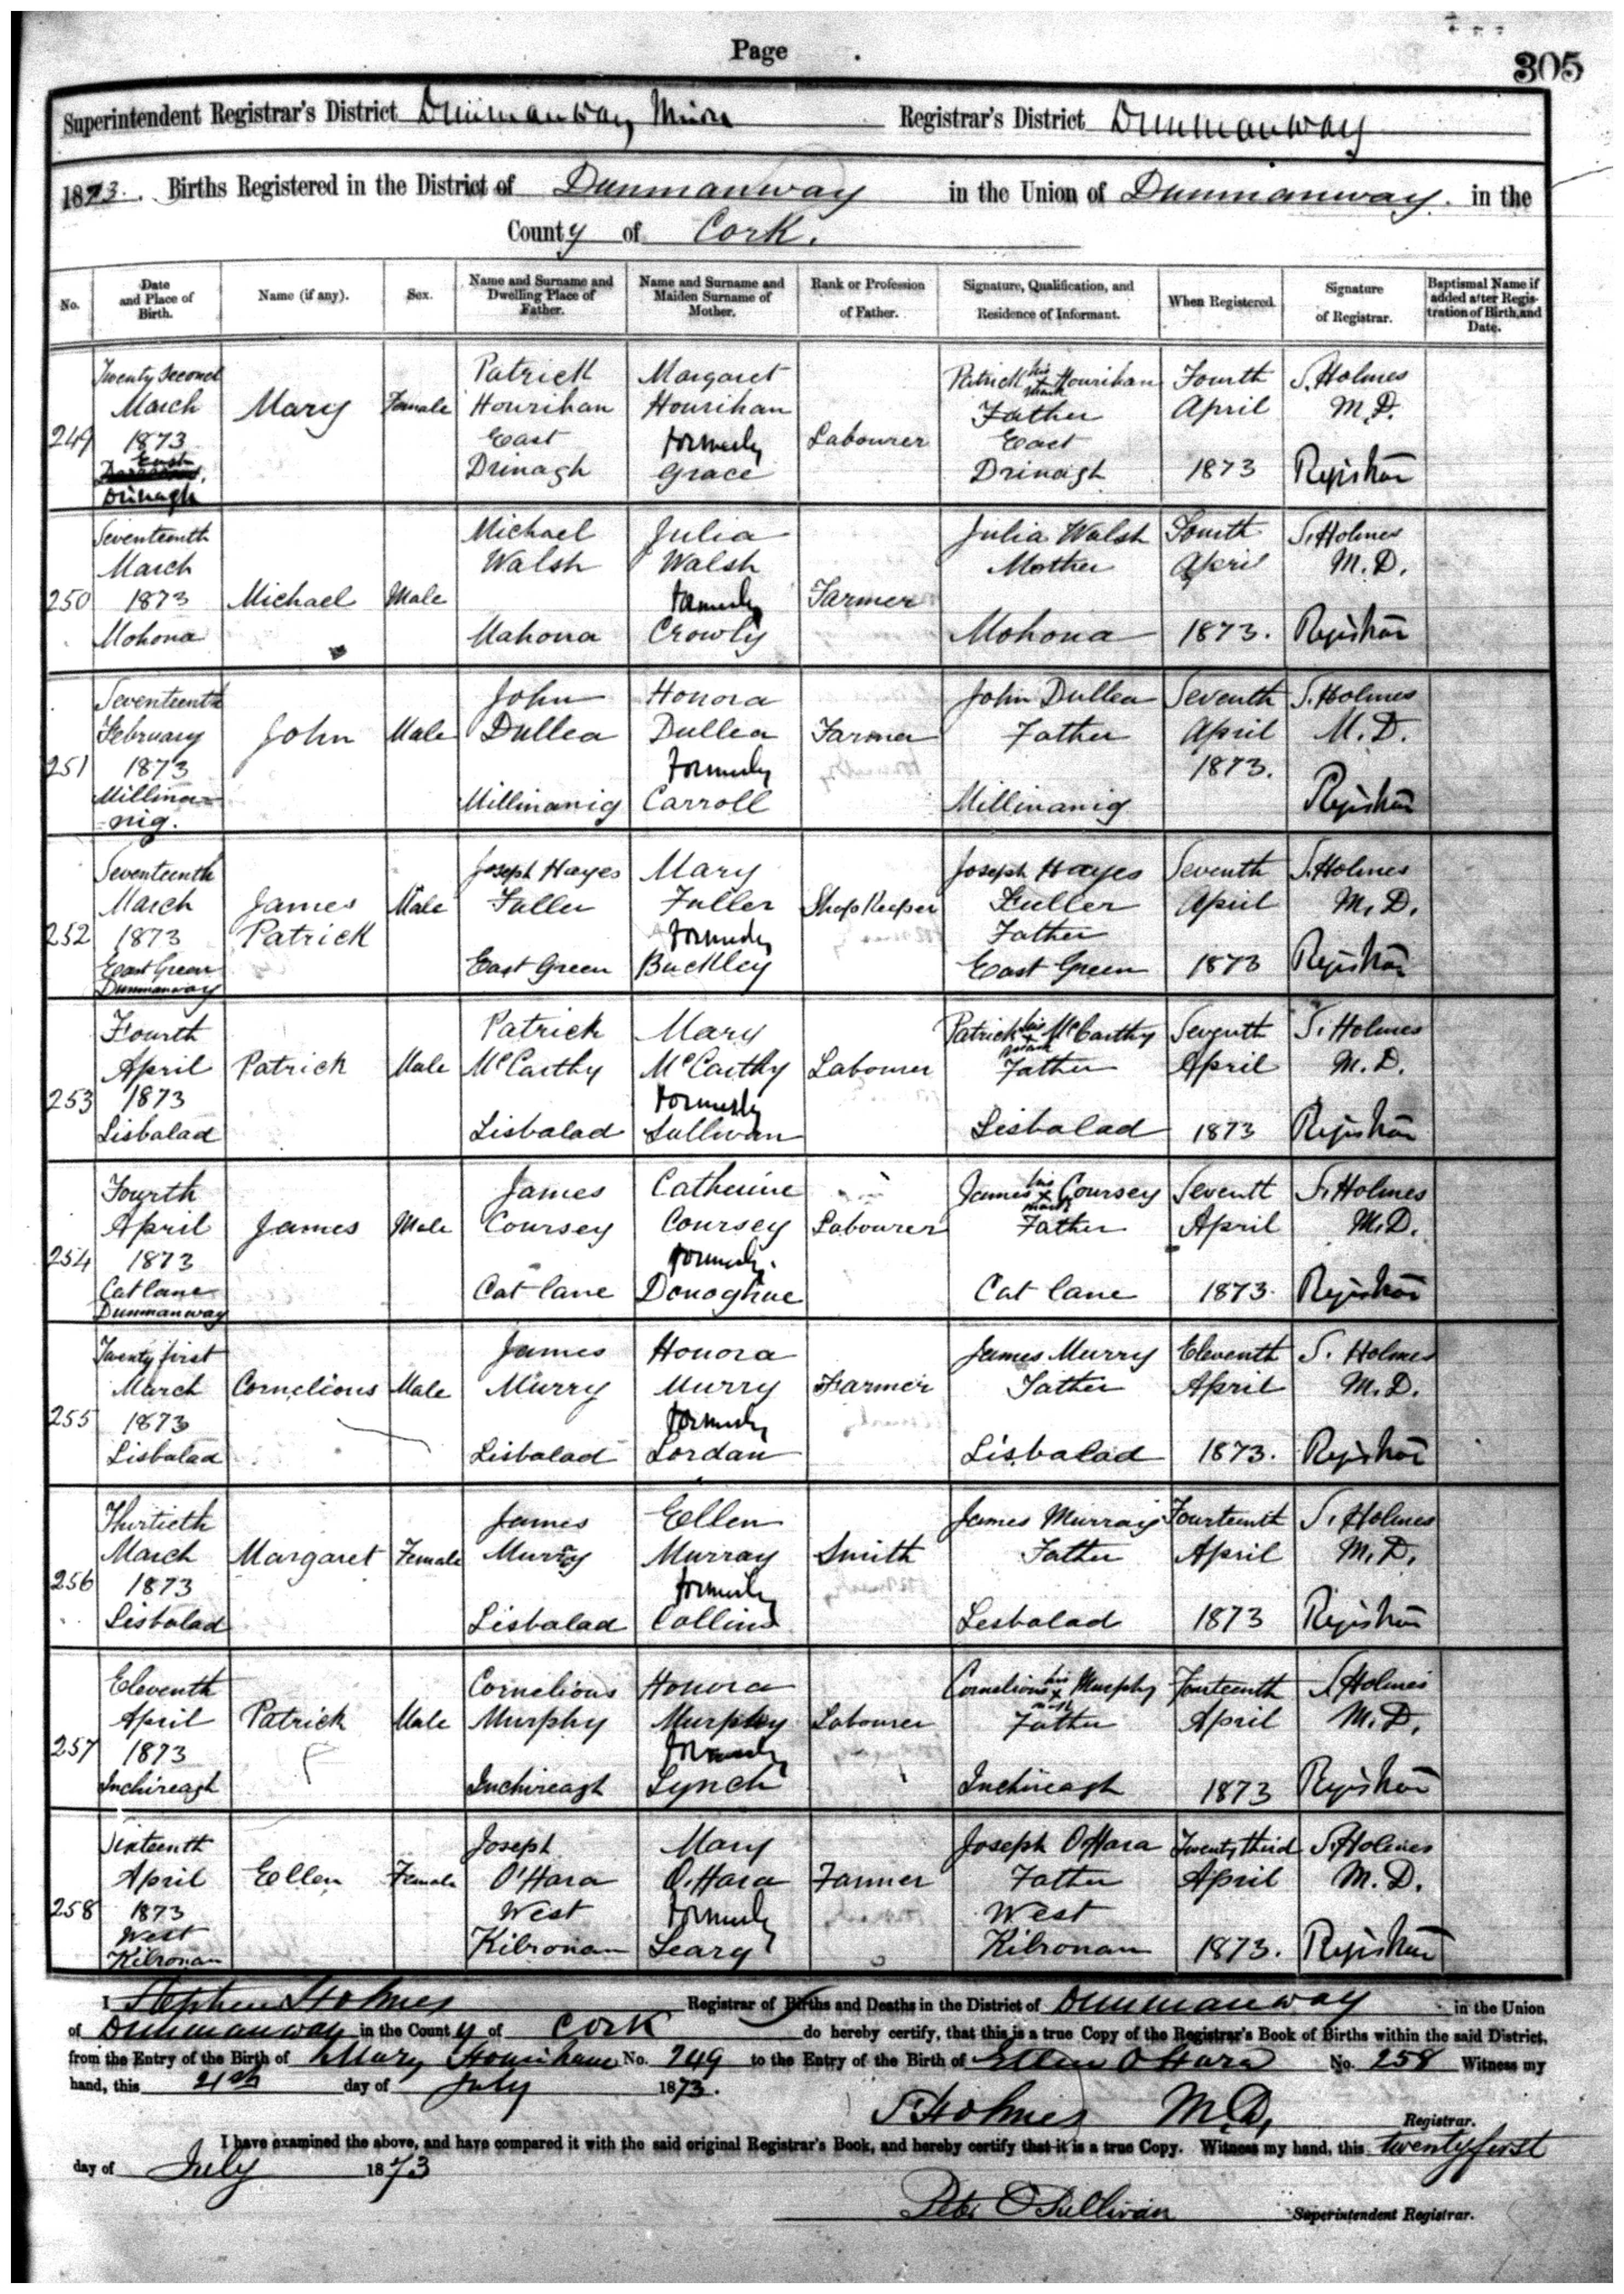 Page
305
Superintendent Registrar's District Dunmanway Union Registrar's District Dunmanway
1873. Births Registered in the District of Dunmanway in the Union of Dunmanway. in the
County of Cork.
No. Date and Place of Birth. Name (if any). Sex. Name and Surname and Dwelling Place of Father. Name and Surname and Maiden Surname of Mother. Rank or Profession of Father. Signature, Qualification, and Residence of Informant. When Registered. Signature of Registrar. Baptismal Name if added after Registration of Birth, and Date.
249 Twenty Second March 1873 East Drinagh Mary Female Patrick Hourihan East Drinagh Margaret Hourihan formerly Grace Labourer Patrick his x mark Hourihan Father East Drinagh Fourth April 1873 S. Holmes M.D. Registrar
250 Seventeenth March 1873 Mohona Michael Male Michael Walsh Mahona Julia Walsh formerly Crowly Farmer Julia Walsh Mother Mohona Fourth April 1873. S. Holmes M.D. Registrar
251 Seventeenth February 1873 Millina-nig. John Male John Dullea Millinanig Honora Dullea formerly Carroll Farmer John Dullea Father Millinanig Seventh April 1873. S. Holmes M.D. Registrar
252 Seventeenth March 1873 East Green Dunmanway James Patrick Male Joseph Hayes Fuller East Green Mary Fuller formerly Buckley Shop Keeper Joseph Hayes Fuller Father East Green Seventh April 1873 S. Holmes M.D. Registrar
253 Fourth April 1873 Lisbalad Patrick Male Patrick McCarthy Lisbalad Mary McCarthy formerly Sullivan Labourer Patrick his x mark McCarthy Father Lisbalad Seventh April 1873 S. Holmes M.D. Registrar
254 Fourth April 1873 Cat lane Dunmanway James Male James Coursey Cat lane Catherine Coursey formerly Donoghue Labourer James his x mark Coursey Father Cat lane Seventh April 1873. S. Holmes M.D. Registrar
255 Twenty first March 1873 Lisbalad Cornelious Male James Murry Lisbalad Honora Murry formerly Lordan Farmer James Murry Father Lisbalad Eleventh April 1873. S. Holmes M.D. Registrar
256 Thirtieth March 1873 Lisbalad Margaret Female James Murray Lisbalad Ellen Murray formerly Collins Smith James Murray Father Lesbalad Fourteenth April 1873 S. Holmes M.D. Registrar
257 Eleventh April 1873 Inchireagh Patrick Male Cornelious Murphy Inchireagh Honora Murphy formerly Lynch Labourer Cornelious his x mark Murphy Father Inchireagh Fourteenth April 1873 S. Holmes M.D. Registrar
258 Sixteenth April 1873 West Kilronan Ellen Female Joseph O'Hara West Kilronan Mary O'Hara formerly Leary Farmer Joseph O'Hara Father West Kilronan Twenty third April 1873. S. Holmes M.D. Registrar
I Stephen Holmes Registrar of Births and Deaths in the District of Dunmanway in the Union
of Dunmanway in the County of Cork do hereby certify, that this is a true Copy of the Registrar's Book of Births within the said District,
from the Entry of the Birth of Mary Hourihane No. 249 to the Entry of the Birth of Ellen O'Hara No. 258 Witness my
hand, this 21st day of July 1873.
S. Holmes M.D. Registrar.
I have examined the above, and have compared it with the said original Registrar's Book, and hereby certify that it is a true Copy. Witness my hand, this twenty first
day of July 1873
Peter O'Sullivan Superintendent Registrar.